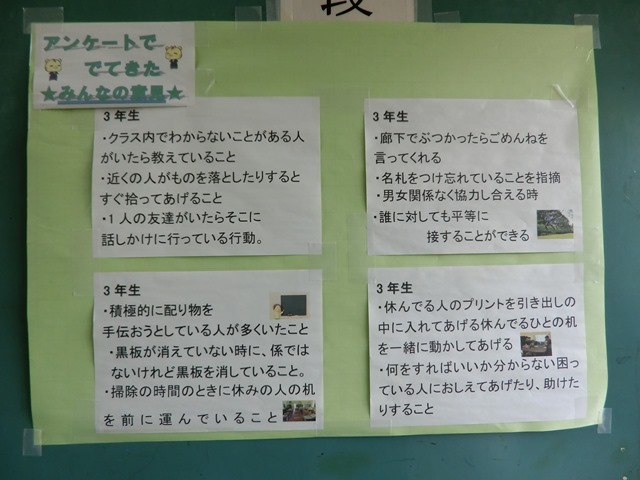 段
アンケートで
でてきた
★みんなの意見★
3年生
・クラス内でわからないことがある人
がいたら教えていること
・近くの人がものを落としたりすると
すぐ拾ってあげること
・1人の友達がいたらそこに
話しかけに行っている行動。
3年生
・廊下でぶつかったらごめんねを
言ってくれる
・名札をつけ忘れていることを指摘
・男女関係なく協力し合える時
・誰に対しても平等に
接することができる
3年生
・積極的に配り物を
手伝おうとしている人が多くいたこと
・黒板が消えていない時に、係では
ないけれど黒板を消していること。
・掃除の時間のときに休みの人の机
を前に運んでいること
3年生
・休んでる人のプリントを引き出しの
中に入れてあげる休んでるひとの机
を一緒に動かしてあげる
・何をすればいいか分からない困っ
ている人におしえてあげたり、助けた
りすること